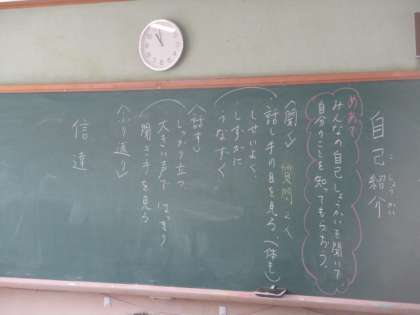 自己紹介
じこしょうかい
めあて
みんなの自己しょうかいを聞いて、
自分のことを知ってもらおう。
〈聞く〉 質問 2つ
話し手の目を見る。(体も)
しせいよく、
しずかに
うなずく
〈話す〉
しっかり立つ
大きい声で はっきり
聞き手を見る
〈ふり返り〉
信達